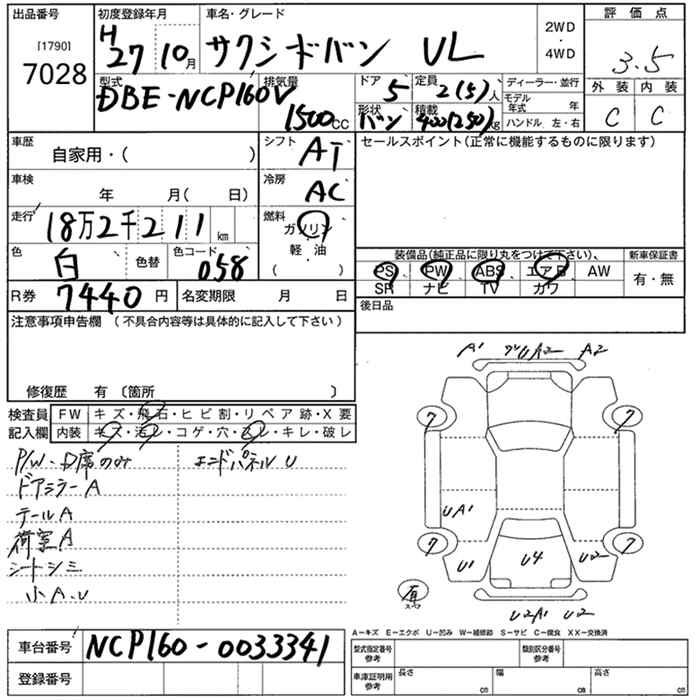 出品番号
[1790]
7028
初度登録年月
H27 10月
車名・グレード
サクシードバン UL
2WD
・
4WD
評価点
3.5
外装 内装
C C
型式
DBE-NCP160V
排気量
1500cc
ドア
5
定員
2(5)人
形状
バン
積載
400(250)kg
ディーラー・並行
モデル年式 年
ハンドル 左・右
車歴
自家用・( )
シフト
AT
車検
年 月( 日)
冷房
AC
走行
18万2千211km
燃料
ガソリン
軽・油
( ・ )
色
白
色替
色コード
058
R券 7440円
名変期限 月 日
セールスポイント(正常に機能するものに限ります)
装備品(純正品に限り丸をつけて下さい)、
PS PW ABS エアB AW
SR ナビ TV カワ
新車保証書
有・無
後日品
注意事項申告欄 (不具合内容等は具体的に記入して下さい)
修復歴 有 〔箇所 〕
検査員
記入欄
FW キズ・飛石・ヒビ割・リペア跡・X要
内装 キズ・汚レ・コゲ・穴・スレ・キレ・破レ
P/W・D席のみ
エンドパネルU
ドアミラーA
テールA
荷室A
シートシミ
小A.U
A1 A2
7 7
UA1
7 7
U1 U4 U2
有
スペア
U2A1 U2
A－キズ E－エクボ U－凹み W－補修跡 S－サビ C－腐食 XX－交換済
車台番号 NCP160-0033341
登録番号
型式指定番号
参考
類別区分番号
参考
車庫証明用
参考
長さ cm
幅 cm
高さ cm